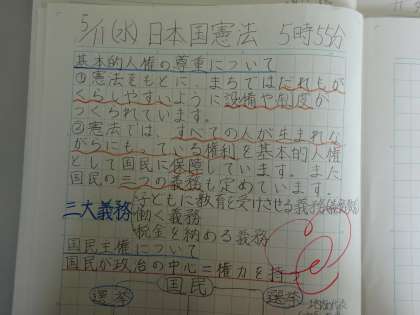 5/11(水)日本国憲法 5時55分
基本的人権の尊重について
①憲法をもとに、まちではだれもが
くらしやすいように設備や制度が
つくられています。
②憲法では、すべての人が生まれな
がらにもっている権利を基本的人権
として国民に保障しています。また、
国民の三つの義務も定めています。
三大義務 子どもに教育を受けさせる義務
働く義務
税金を納める義務
国民主権について
国民が政治の中心=権力を持つ
選挙 国民 選挙